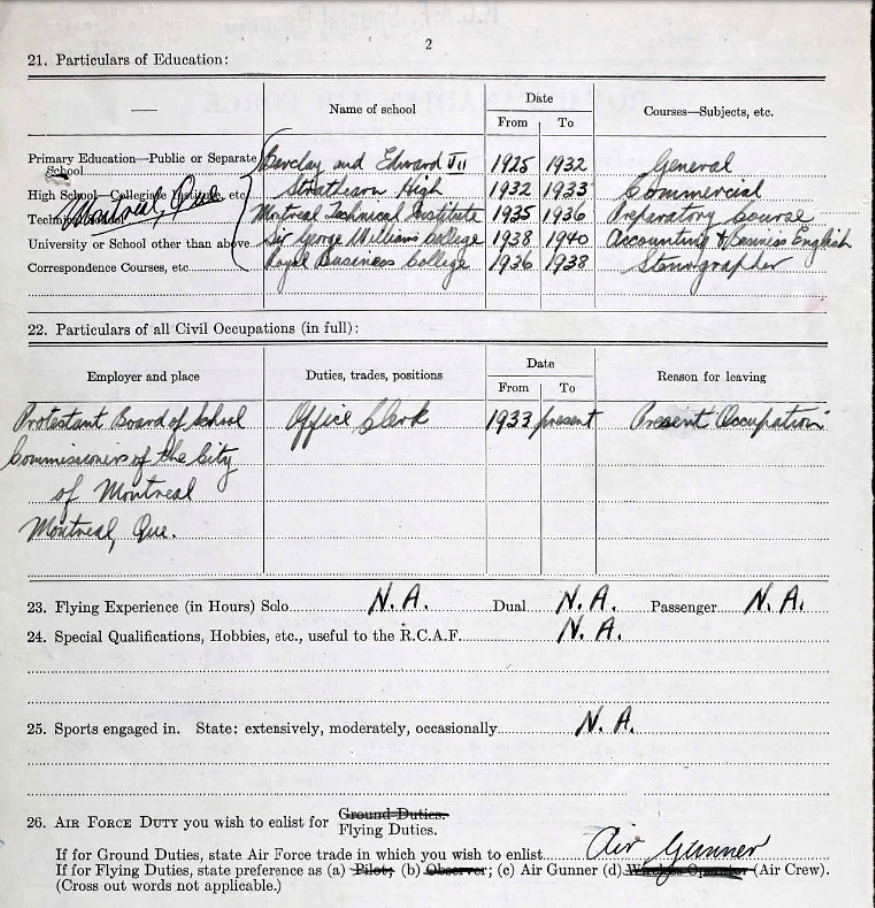 2
21. Particulars of Education:
Name of school
Date
Courses—Subjects, etc.
From
To
Primary Education—Public or Separate School
Barclay and Edward VII 1925 1932 General
High School—Collegiate Institute, etc
Strathearn High 1932 1933 Commercial
Montreal, Que
Montreal Technical Institute 1935 1936 Preparatory Course
University or School other than above
Sir George Williams College 1938 1940 Accounting & Business English
Correspondence Courses, etc
Royal Business College 1936 1938 Stenographer
22. Particulars of all Civil Occupations (in full):
Employer and place
Duties, trades, positions
Date
Reason for leaving
From
To
Protestant Board of School Office Clerk 1933 present Present "Occupation"
Commissioners of the City
of Montreal
Montreal, Que.
23. Flying Experience (in Hours) Solo N.A. Dual N.A. Passenger N.A.
24. Special Qualifications, Hobbies, etc., useful to the R.C.A.F. N.A.
25. Sports engaged in. State: extensively, moderately, occasionally N.A.
26. AIR FORCE DUTY you wish to enlist for Ground Duties.
Flying Duties.
If for Ground Duties, state Air Force trade in which you wish to enlist Air Gunner
If for Flying Duties, state preference as (a) Pilot; (b) Observer; (c) Air Gunner (d) Wireless Operator (Air Crew).
(Cross out words not applicable.)